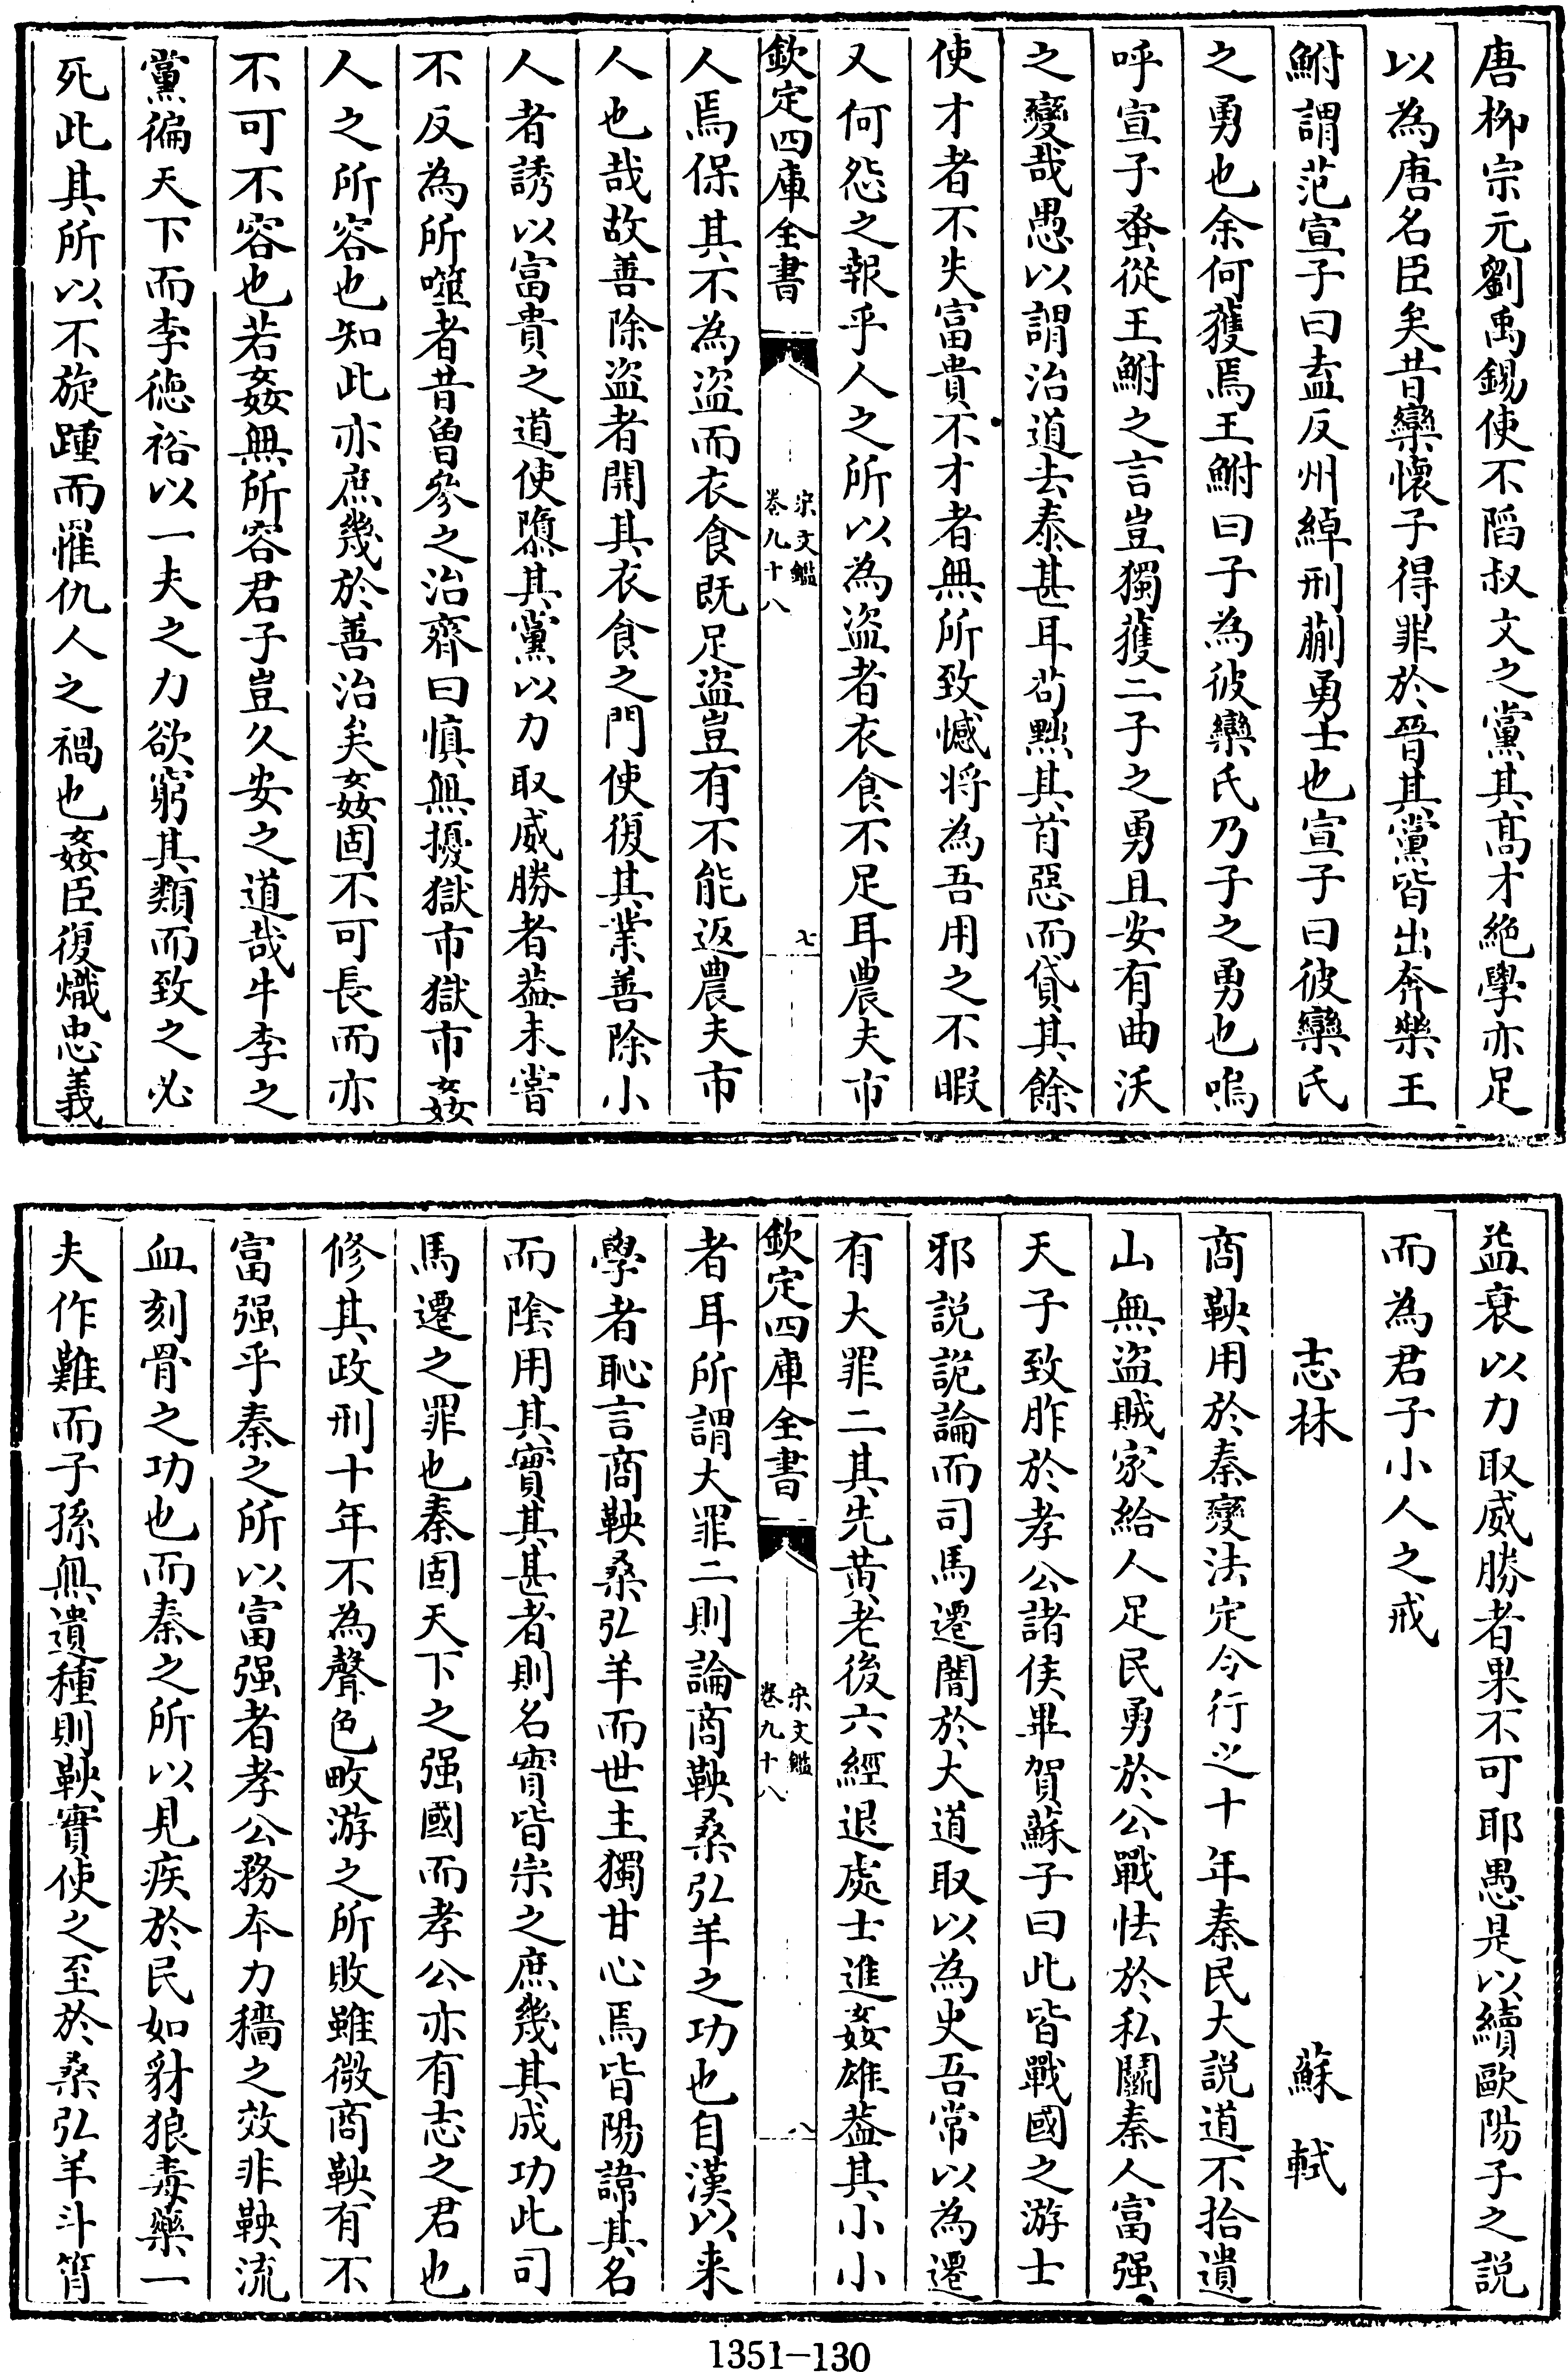 唐栁宗元劉禹錫使不䧟叔文之黨其髙才絶學亦足
以為唐名臣矣昔欒懷子得罪於晉其黨皆出奔樂王
鮒謂范宣子曰盍反州綽刑蒯勇士也宣子曰彼欒氏
之勇也余何獲焉王鮒曰子為彼欒氏乃子之勇也嗚
呼宣子蚤從王鮒之言豈獨獲二子之勇且安有曲沃
之變哉愚以謂治道去泰甚耳茍黜其首惡而貸其餘
使才者不失富貴不才者無所致憾将為吾用之不暇
又何怨之報乎人之所以為盗者衣食不足耳農夫市
欽定四庫全書
宋文鑑
卷九十八
七
人焉保其不為盗而衣食既足盗豈有不能返農夫市
人也哉故善除盗者開其衣食之門使復其業善除小
人者誘以富貴之道使隳其黨以力取威勝者葢未嘗
不反為所噬者昔曽參之治齊曰慎無擾獄市獄市姦
人之所容也知此亦庶幾於善治矣姦固不可長而亦
不可不容也若姦無所容君子豈久安之道哉牛李之
黨徧天下而李徳裕以一夫之力欲窮其類而致之必
死此其所以不旋踵而罹仇人之禍也姦臣復熾忠義
益衰以力取威勝者果不可耶愚是以續歐陽子之説
而為君子小人之戒
志林 蘇軾
商鞅用於秦變法定令行之十年秦民大説道不拾遺
山無盗賊家給人足民勇於公戰怯於私鬭秦人富强
天子致胙於孝公諸侯畢賀蘇子曰此皆戰國之游士
邪説詭論而司馬遷闇於大道取以為史吾常以為遷
有大罪二其先黄老後六經退處士進姦雄葢其小小
欽定四庫全書
宋文鑑
卷九十八
八
者耳所謂大罪二則論商鞅桑弘羊之功也自漢以来
學者恥言商鞅桑弘羊而世主獨甘心焉皆陽諱其名
而陰用其實其甚者則名實皆宗之庶幾其成功此司
馬遷之罪也秦固天下之强國而孝公亦有志之君也
修其政刑十年不為聲色畋游之所敗雖微商鞅有不
富强乎秦之所以富强者孝公務本力穡之效非鞅流
血刻骨之功也而秦之所以見疾於民如豺狼毒藥一
夫作難而子孫無遺種則鞅實使之至於桑弘羊斗筲
1351-130